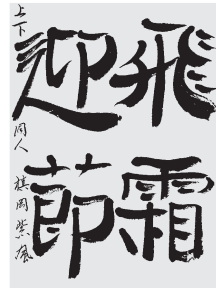 飛霜
迎節
上下
同人 棋岡紫風